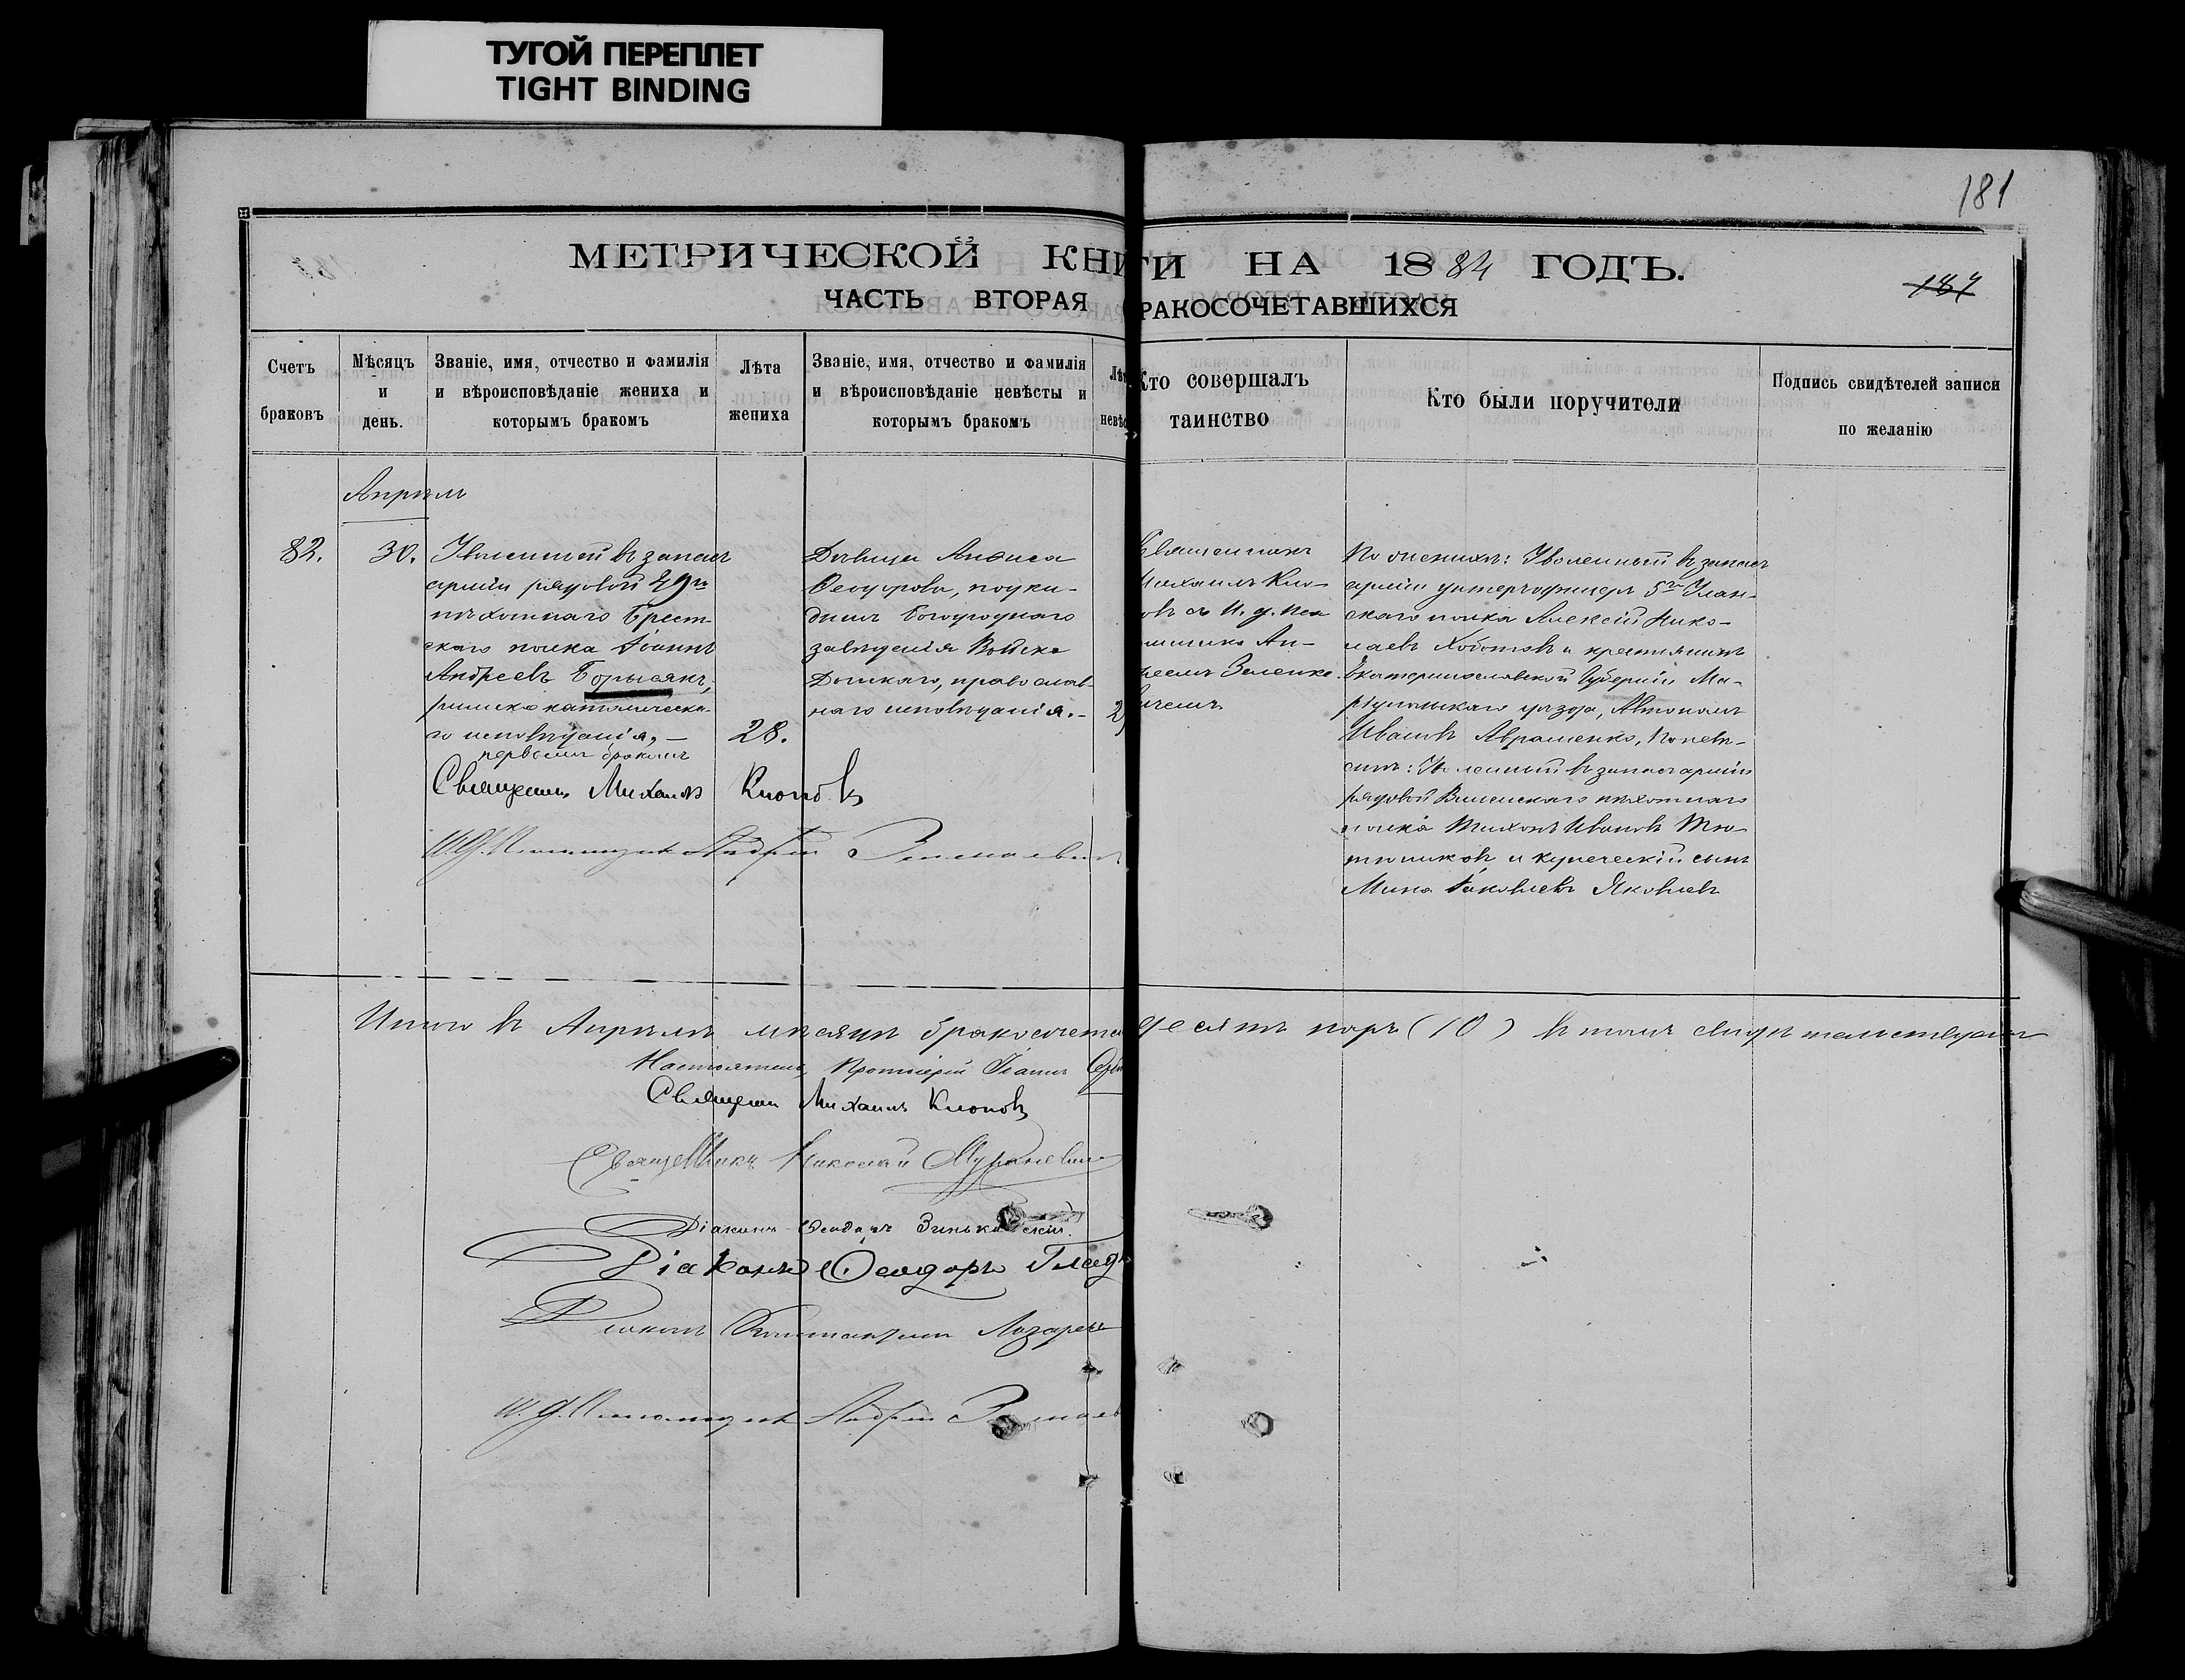 ТУГОЙ ПЕРЕПЛЕТ
TIGHT BINDING
181
МЕТРИЧЕСКОЙ КНИГИ НА 1884 ГОДЪ.
ЧАСТЬ ВТОРАЯ РАКОСОЧЕТАВШИХСЯ
Счетъ
браковъ
Мѣсяцъ
и
день.
Званіе, имя, отчество и фамилія
и вѣроисповѣданіе жениха и
которымъ бракомъ
Лѣта
жениха
Званіе, имя, отчество и фамилія
и вѣроисповѣданіе невѣсты и
которымъ бракомъ
Кто совершалъ
таинство
Кто были поручители
Подпись свидѣтелей записи
по желанію
Апрѣль
82.
30.
Уволенный въ запасъ
арміи рядовой 49го
пѣхотнаго Брест-
скаго полка Іоаннъ
Андреевъ Борысякъ,
римско католическа-
го исповѣданія, —
первымъ бракомъ
28.
Дѣвица Анѳиса
Ѳеодорова, подки-
дышъ Богоугоднаго
заведенія Войска
Донскаго, православ-
наго исповѣданія. —
Священникъ
Михаилъ Кло-
овъ съ И. д. пса
Ан-
реемъ Зеленке
вичемъ
По женихѣ: Уволенный въ запасъ
арміи унтеръ-офицеръ 5го Улан-
скаго полка Алексій Нико-
лаевъ Хоботовъ и крестьянинъ
Екатеринославской Губерніи Ма-
ріупольскаго уѣзда, Автономъ
Ивановъ Авраменко, По невѣ-
стѣ: Уволенный въ запасъ арміи
рядовой Виленскаго пѣхотнаго
полка Тихонъ Ивановъ Тю-
тюнниковъ и купеческій сынъ
Мина Іаковлевъ Яковлевъ
Священникъ Михаилъ Клоповъ
И. Д. Псаломщика Андрей
Итого въ Апрѣлѣ мѣсяцѣ бракосочета десять паръ (10) въ томъ свидѣтельствуемъ
Настоятель, Протоіерей Іоаннъ
Священникъ Михаилъ Клоповъ
Священникъ Николай
Діаконъ Ѳеодоръ
Діаконъ Ѳеодоръ
Діаконъ Константинъ Лазаре
И. Д. Псаломщика Андрей